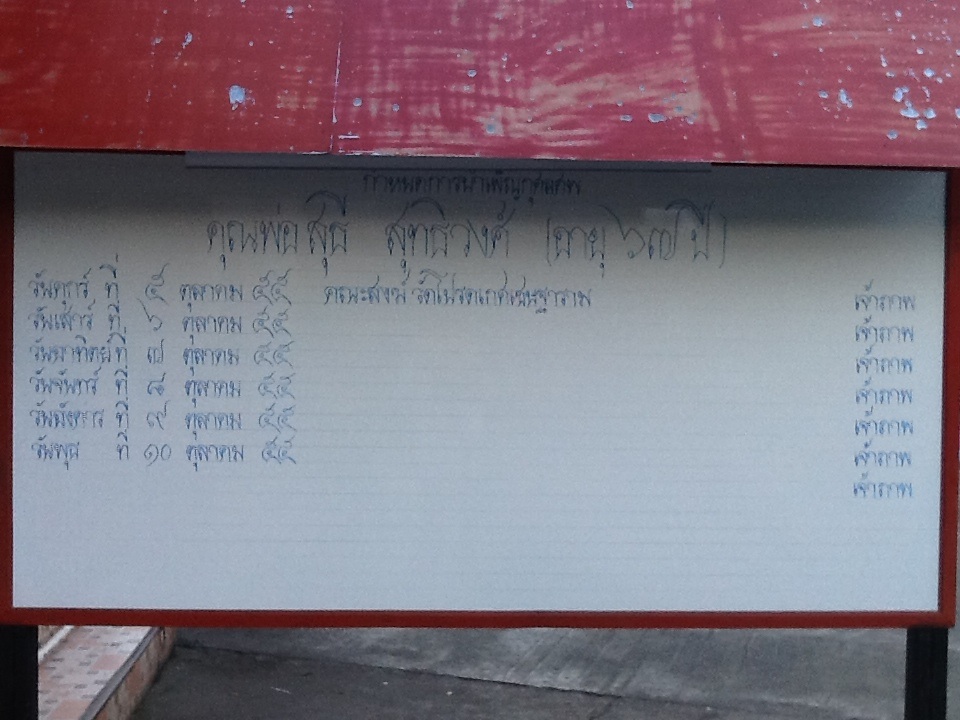 กำหนดการบำเพ็ญกุศลศพ
คุณพ่อ สุธี สุทธิวงศ์ (อายุ ๖๗ ปี)
วันศุกร์ ที่ ๕ ตุลาคม ๕๕ คณะสงฆ์ วัดโปรดเกศเชษฐาราม เจ้าภาพ
วันเสาร์ ที่ ๖ ตุลาคม ๕๕ เจ้าภาพ
วันอาทิตย์ ที่ ๗ ตุลาคม ๕๕ เจ้าภาพ
วันจันทร์ ที่ ๘ ตุลาคม ๕๕ เจ้าภาพ
วันอังคาร ที่ ๙ ตุลาคม ๕๕ เจ้าภาพ
วันพุธ ที่ ๑๐ ตุลาคม ๕๕ เจ้าภาพ
เจ้าภาพ